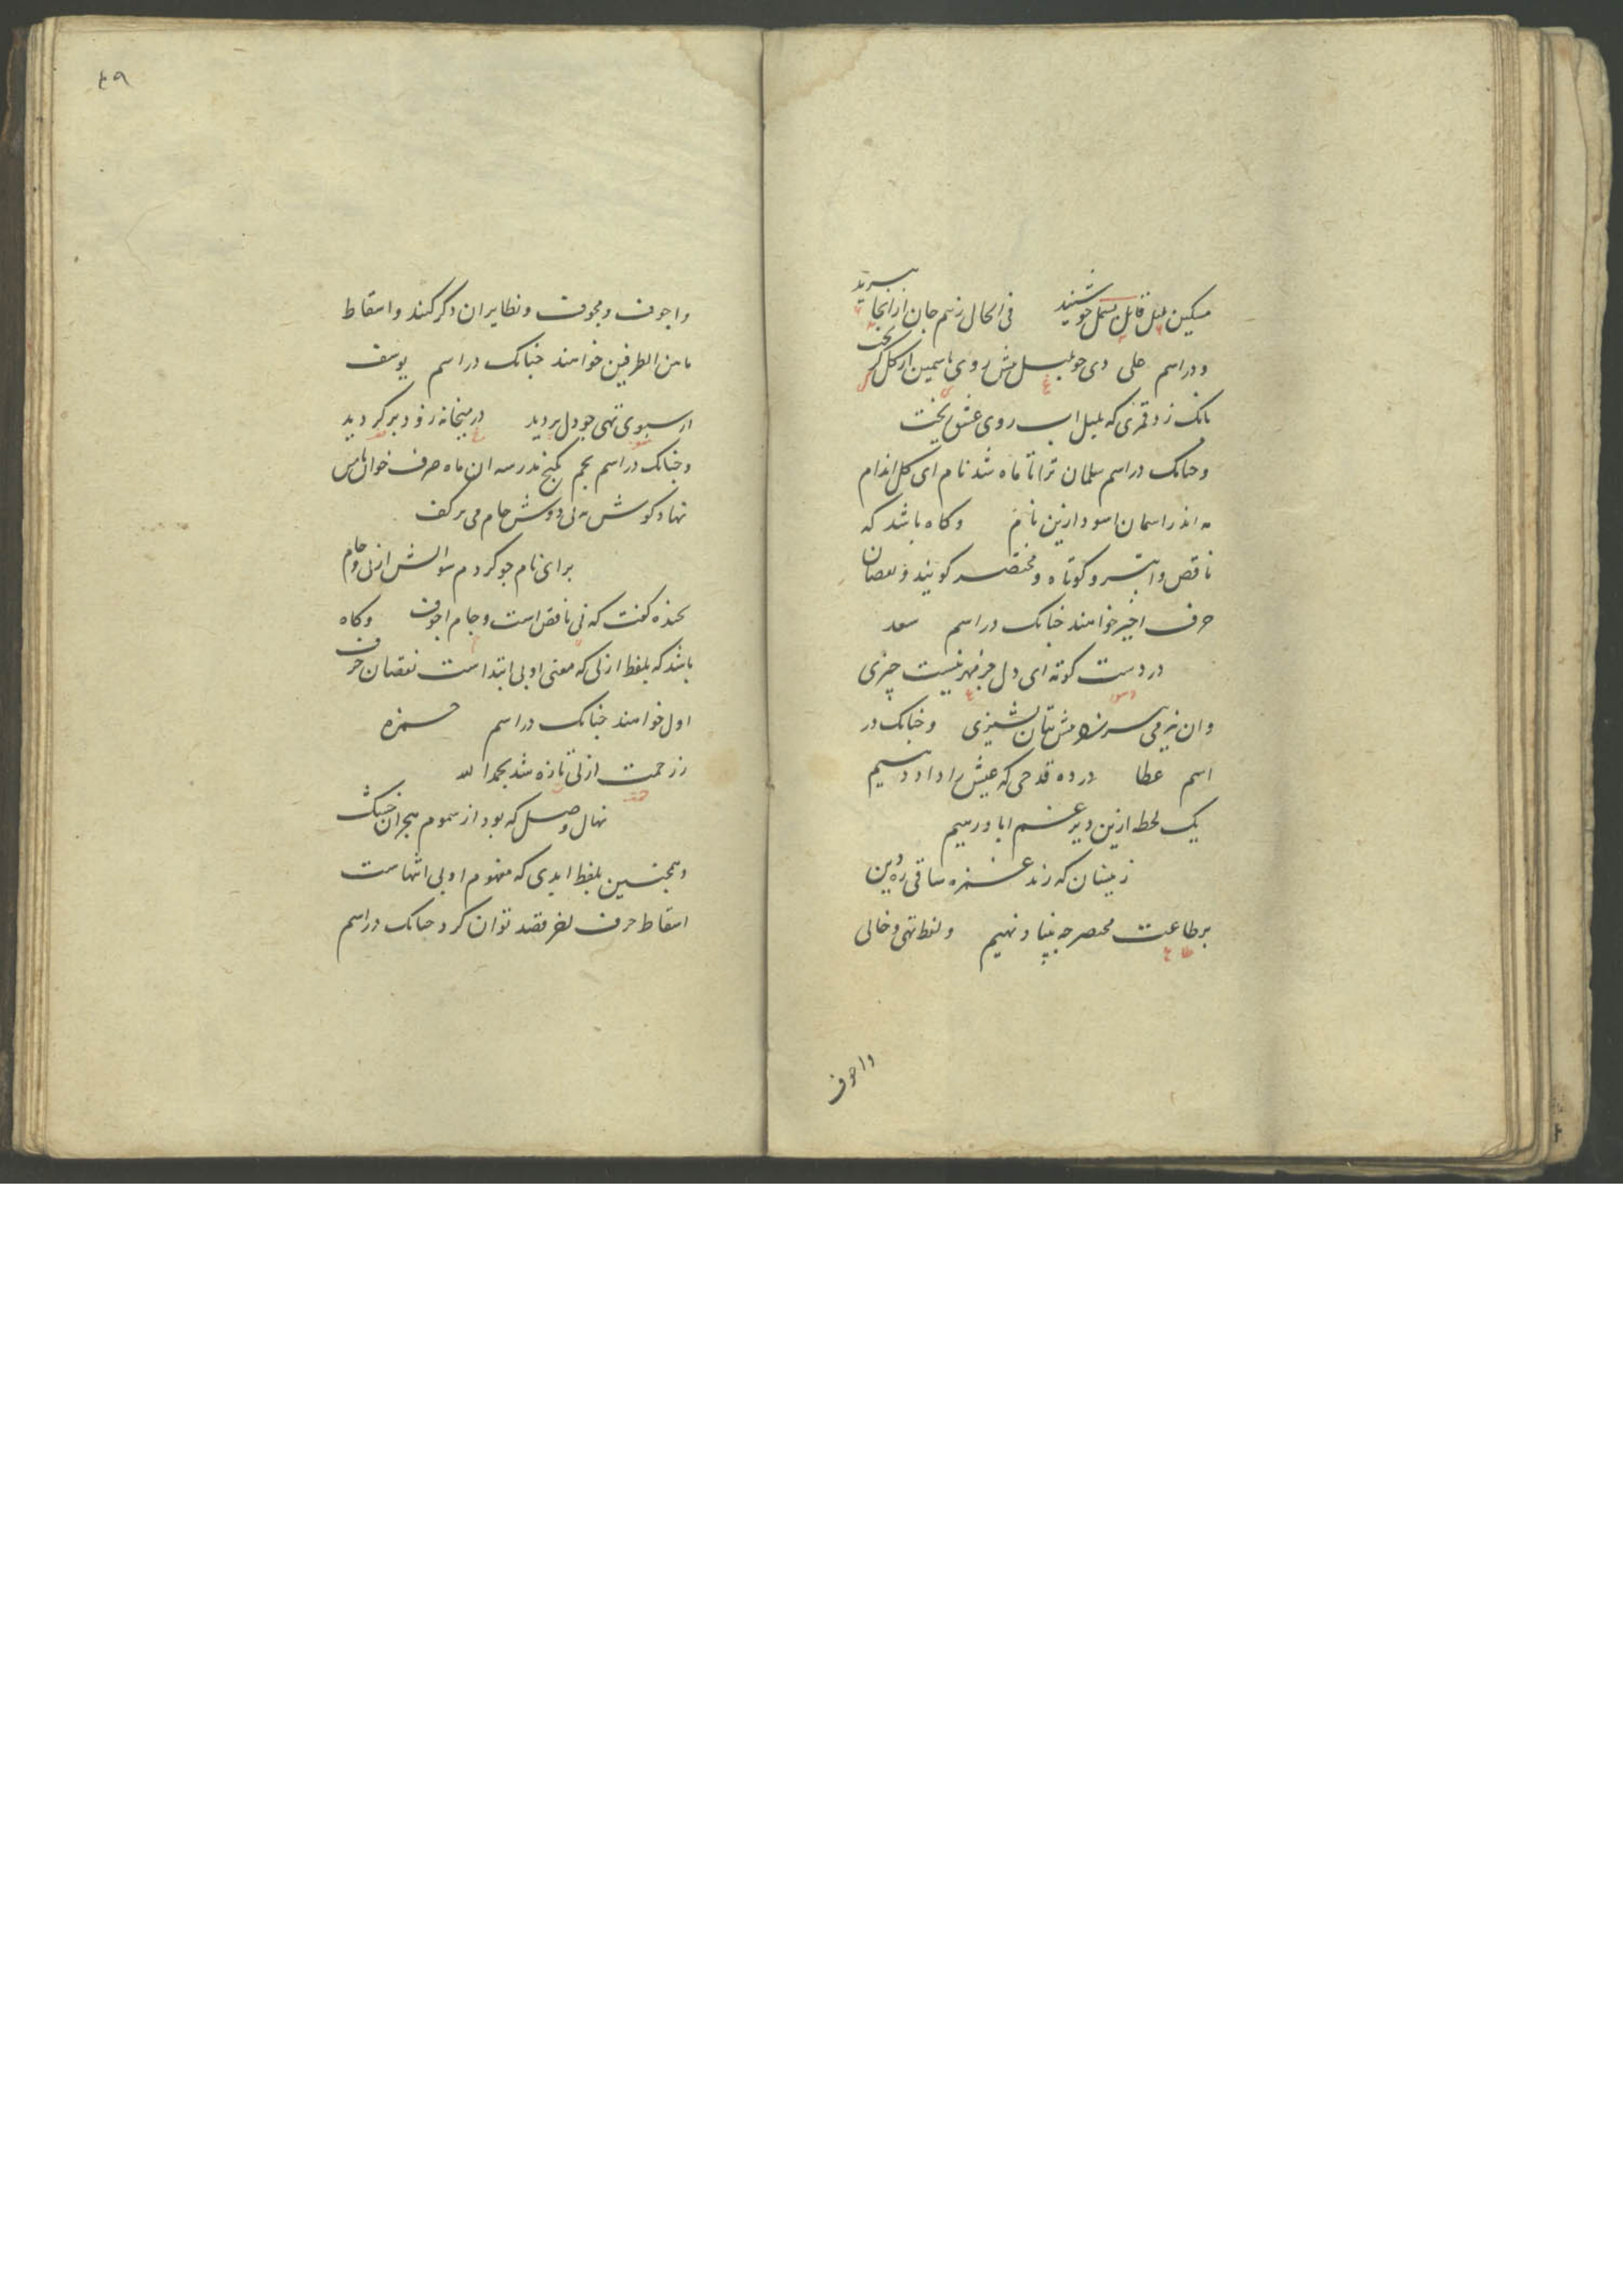 مسکین بلبل قابل بسمل جو شنید فی الحال ز بیم جان از انجا ببرید
و در اسم علی دی جو بلبل پیش روی یاسمین از کل کریخت
بانک زد قمری که بلبل اب روی عشق ریخت
و جنانک در اسم سلمان ترا تا ماه شد نام ای کل اندام
مه اندر اسمان اسود ازین نام و کاه باشد که
ناقص و ابتر و کوتاه و مختصر کویند و نقصان
حرف اخیر خواهند جنانک در اسم سعد
در دست کوته ای دل جز مهر نیست چیزی
وان نیز فی سر زر پیش بتان پشیزی و جنانک در
اسم عطا در ده قدحی که عیش را داد دهیم
یک لحظه ازین دیر غم اباد رهیم
زینسان که زند غمزه ساقی ره دین
بر طاعت مختصر جه بنیاد نهیم و لفظ تهی و خالی
واجوف
٤٩
واجوف و مجوف و نظایر ان ذکر کنند و اسقاط
ما بین الطرفین خواهند جنانک در اسم یوسف
از سبوی تهی جو دل بردید در میخانه زود بر کردید
و جنانک در اسم نجم بکنج مدرسه ان ماه حرف خوان
نهاد کوش به نی دوش جام می بر کف
برای نام جو کردم سوالش از نی و جام
بخنده کفت که نی ناقص است و جام اجوف و کاه
باشد که بلفظ ازلی که معنی او بی ابتداست نقصان حرف
اول خواهند جنانک در اسم حمزه
ز رحمت ازلی تازه شد بحمد الله
نهال وصل که بود از سموم هجران خشک
و همجنین بلفظ ابدی که مفهوم او بی انتهاست
اسقاط حرف اخر قصد توان کرد جنانک در اسم